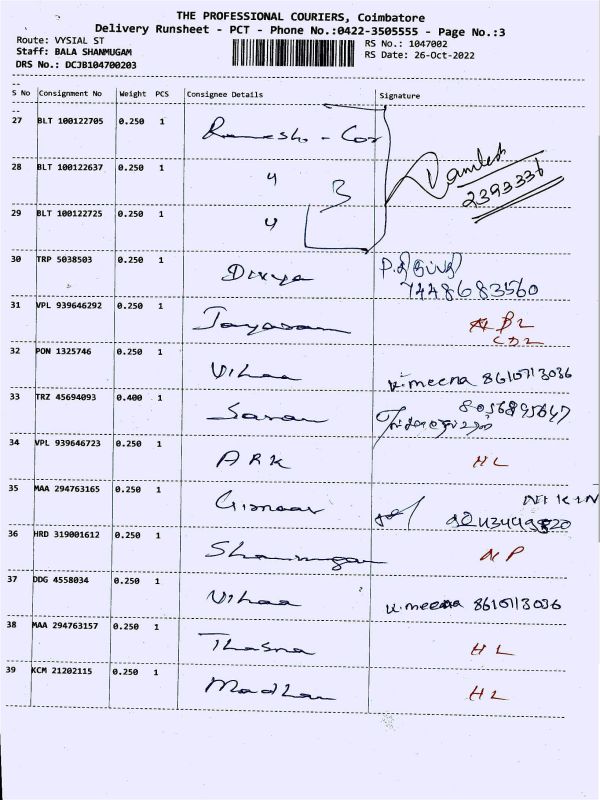 THE PROFESSIONAL COURIERS, Coimbatore
Delivery Runsheet - PCT - Phone No.:0422-3505555 - Page No.:3
Route: VYSIAL ST
RS No.: 1047002
Staff: BALA SHANMUGAM
RS Date: 26-Oct-2022
DRS No.: DCJB104700203
S No Consignment No Weight PCS Consignee Details Signature
27 BLT 100122705 0.250 1 Ramesh - Cor
28 BLT 100122637 0.250 1 4 3
2393336
29 BLT 100122725 0.250 1 4
30 TRP 5038503 0.250 1 Divya 7448683560
31 VPL 939646292 0.250 1 Jayaram
32 PON 1325746 0.250 1 Vihaa K.meena 8610713036
33 TRZ 45694093 0.400 1 Saran 8056895647
34 VPL 939646723 0.250 1 ARK HL
35 MAA 294763165 0.250 1
36 HRD 319001612 0.250 1 Shanmugam NP
37 DDG 4558034 0.250 1 Vihaa K.meena 8610713036
38 MAA 294763157 0.250 1 Thasna HL
39 KCM 21202115 0.250 1 Madhan HL